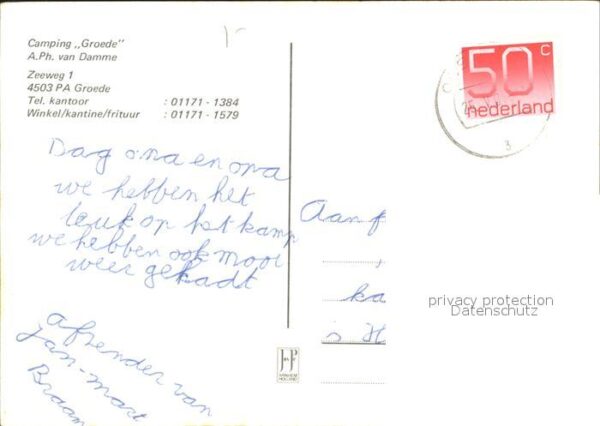 Camping „Groede"
A.Ph. van Damme
Zeeweg 1
4503 PA Groede
Tel. kantoor : 01171 - 1384
Winkel/kantine/frituur : 01171 - 1579
50 c
nederland
Dag oma en opa
we hebben het
leuk op het kamp
we hebben ook mooi
weer gehadt
Aan f
ka
s H
privacy protection
Datenschutz
afzender van
Jan-mart
Braam
JosP
ARNHEM
HOLLAND